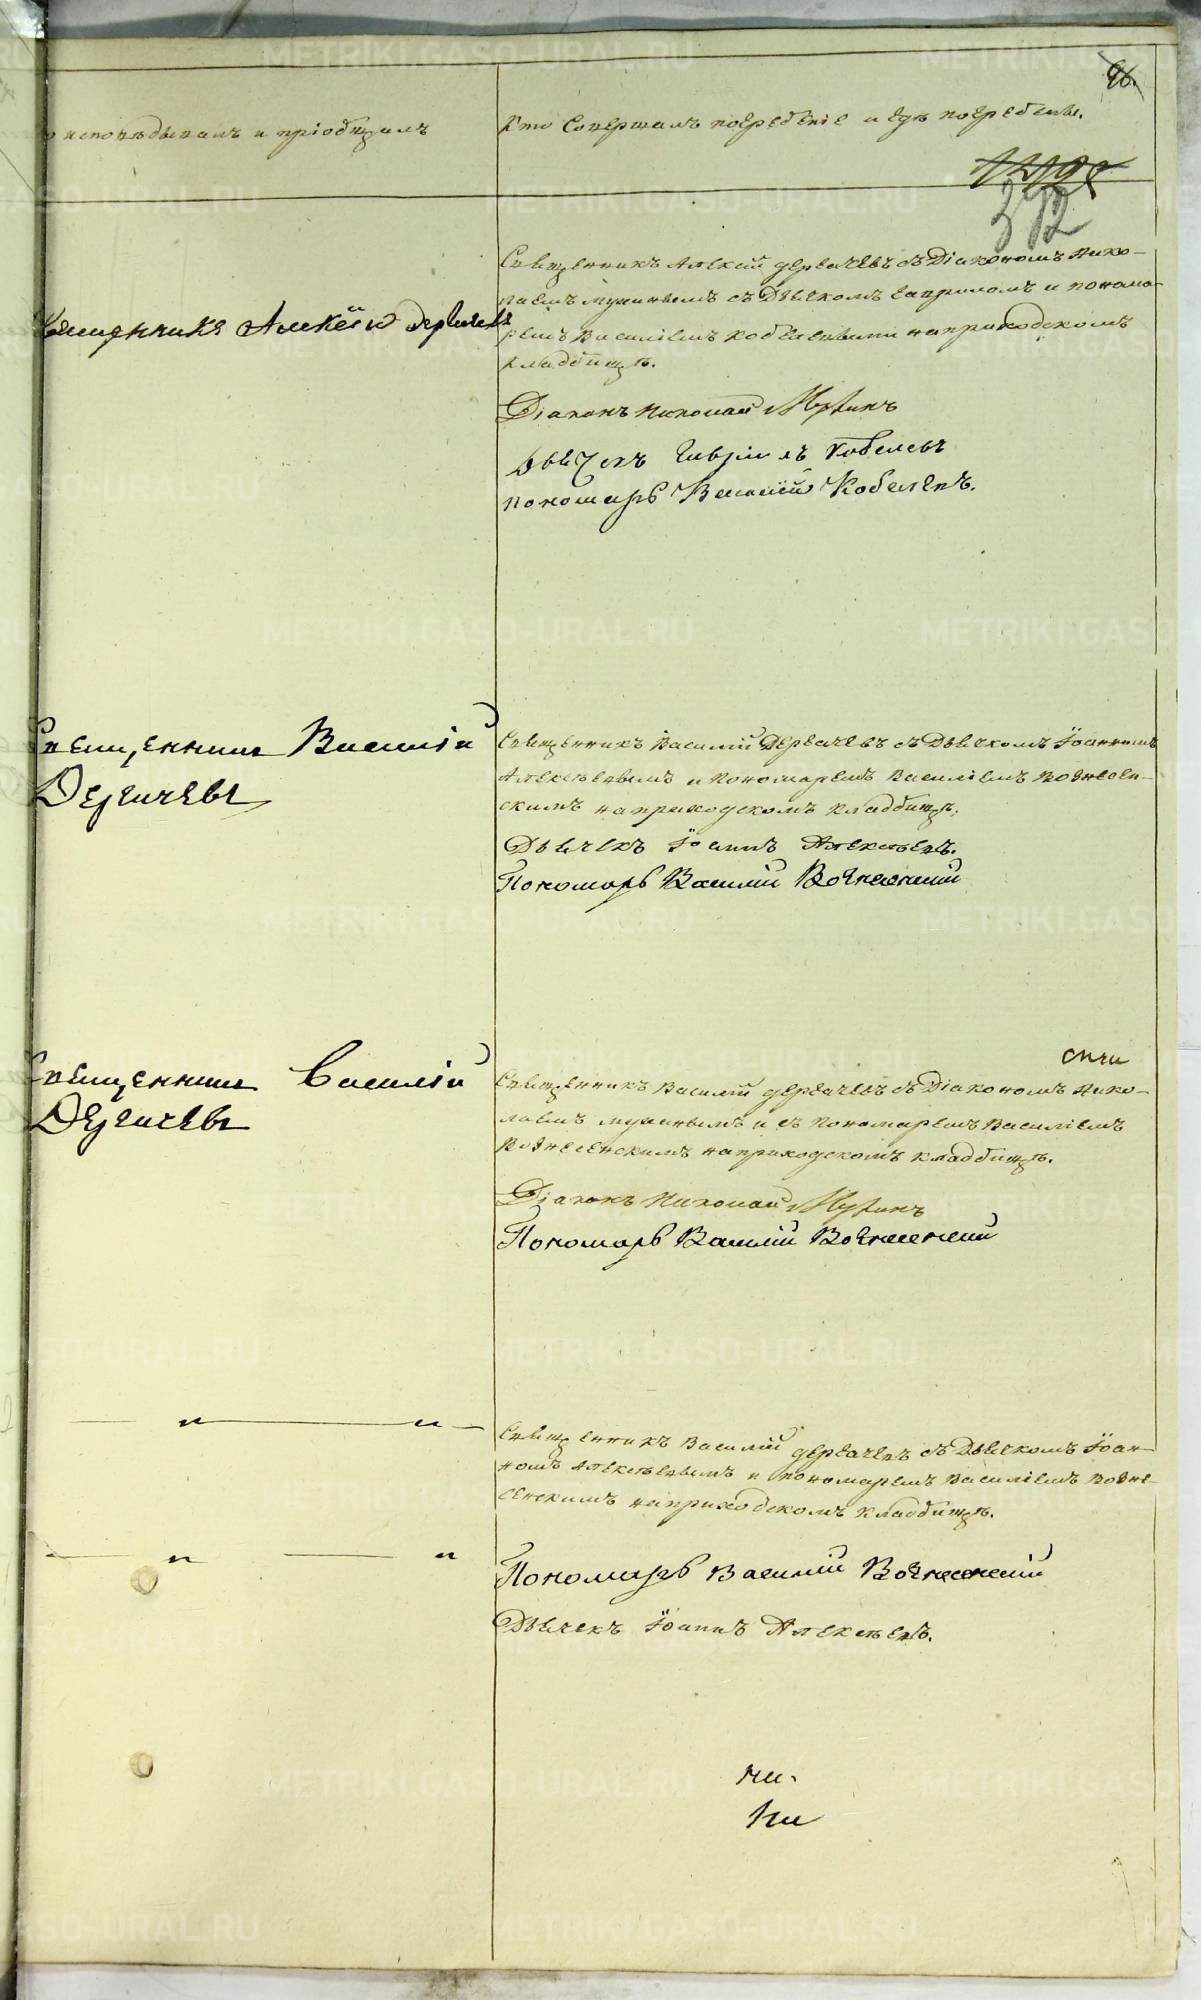 96.
исповѣдывалъ и пріобщалъ
Кто Совершалъ погребеніе и гдѣ погребены.
372
Священникъ Алексій Дергачевъ съ Діакономъ Нико-
лаемъ Мухинымъ съ Дьячкомъ Гавриломъ и понома-
ремъ Василіемъ Кобелевыми на приходскомъ
кладбищѣ.
Священникъ Алексѣй Дергачевъ
Діаконъ Николай Мухинъ
Дьячекъ Гавріилъ Кобелевъ
пономарь Василій Кобелевъ.
Священникъ Василій
Дергачевъ
Священникъ Василій Дергачевъ съ Дьячкомъ Іоанномъ
Алексѣевымъ и Пономаремъ Василіемъ Вознесен-
скимъ на приходскомъ кладбищѣ.
Дьячекъ Іоаннъ Алексѣевъ.
Пономарь Василій Вознесенскій
Священникъ Василій
Дергачевъ
Священникъ Василій Дергачевъ съ Діакономъ Нико-
лаемъ Мухинымъ и съ Пономаремъ Василіемъ
Вознесенскимъ на приходскомъ кладбищѣ.
Діаконъ Николай Мухинъ
Пономарь Василій Вознесенскій
Священникъ Василій Дергачевъ съ Дьячкомъ Іоан-
номъ Алексѣевымъ и пономаремъ Василіемъ Возне-
сенскимъ на приходскомъ кладбищѣ.
Пономарь Василій Вознесенскій
Дьячекъ Іоаннъ Алексѣевъ.